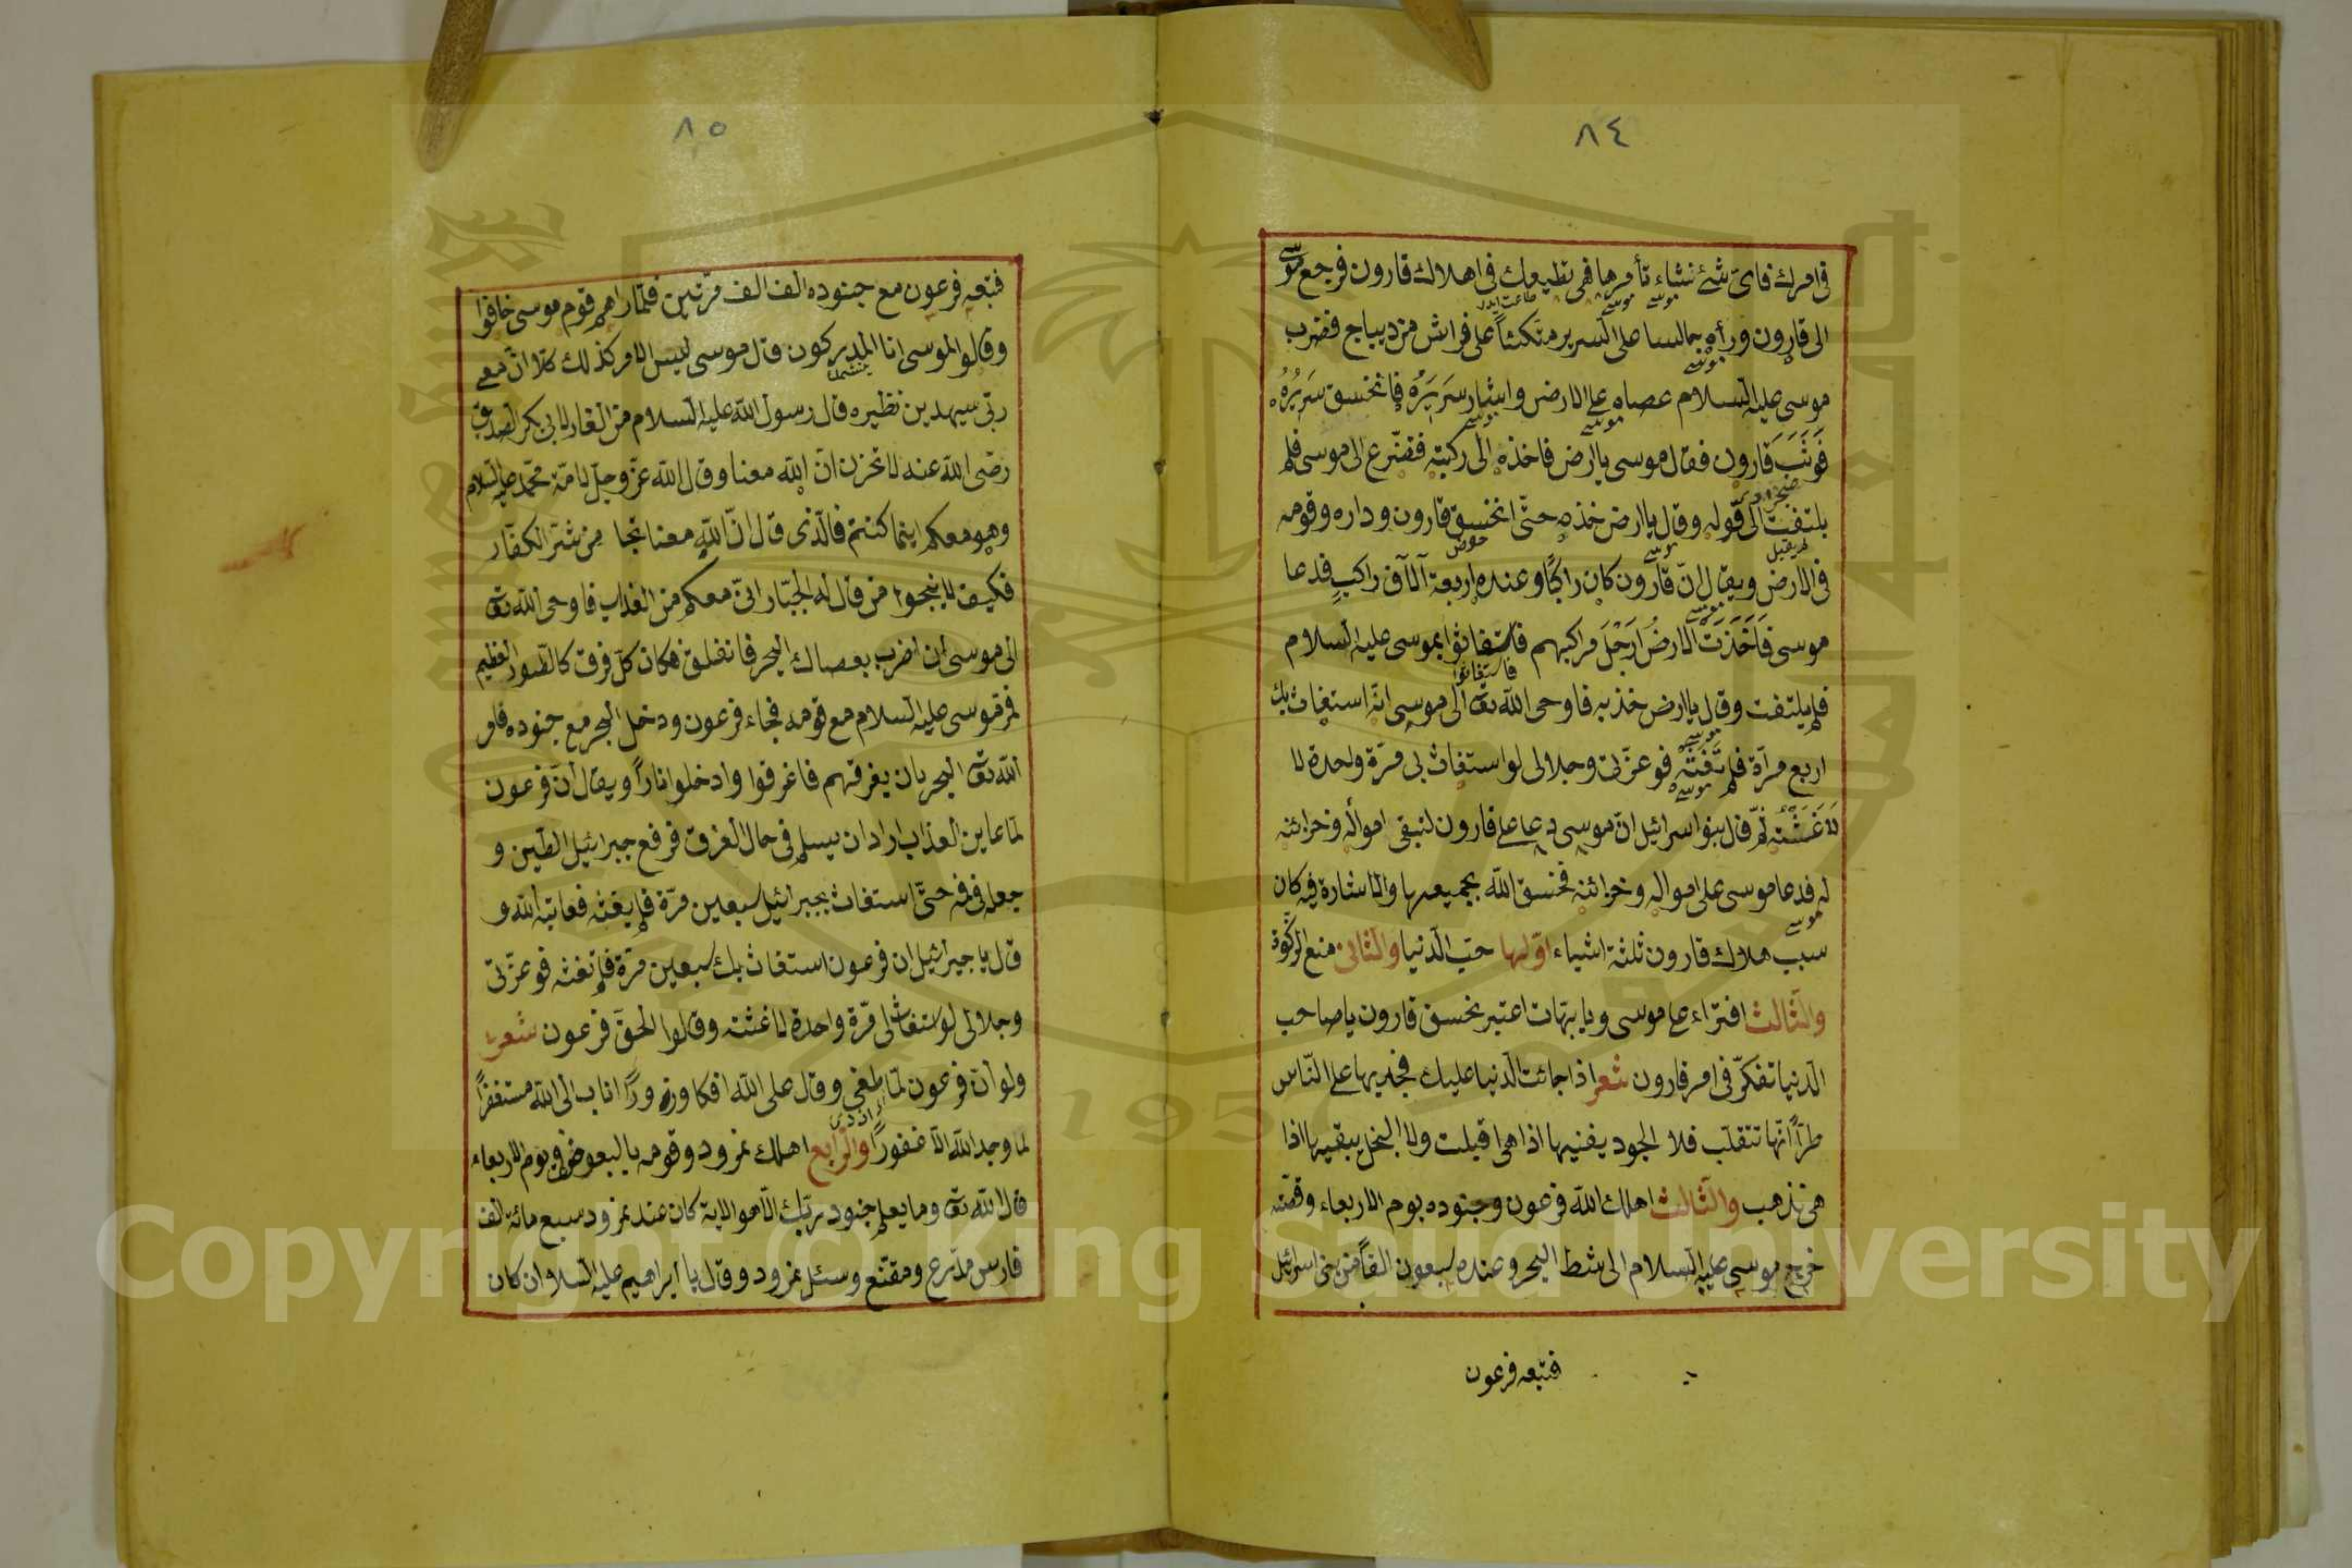 ٨٤
في امرك فاى شئ نشاء تأمرها فهى تطيعك فى اهلاك قارون فرجع موسى
الى قارون ورأه جالسا على السرير متكئا على فراش من ديباج فضرب
موسى عليه السلام عصاه على الارض واشار سريره فانخسق سريره
فوثب قارون فقال موسى يا ارض فاخذه الى ركبته فتضرع الى موسى فلم
يلتفت الى قوله وقال يا ارض خذه حتى انخسق قارون وداره وقومه
فى الارض ويقال ان قارون كان راكبا وعنده اربعة آلاف راكب فدعا
موسى فاخذت الارض ارجل مراكبهم فاستغاثوا بموسى عليه السلام
فلم يلتفت وقال يا ارض خذيه فاوحى الله تعه الى موسى انه استغاث بك
اربع مرآة فلم تغثه فوعزتى وجلالى لو استغاث بى مرة واحدة لا
لاغثته ثم قال بنوا اسرائيل ان موسى دعا على قارون لتبقى امواله وخزائنه
له فدعا موسى على امواله وخزائنه فخسق الله بجميعها والاشارة فيه كان
سبب هلاك قارون ثلثة اشياء اولها حب الدنيا والثانى منع الزكوة
والثالث افتراء على موسى وبا بهتات اعتبر بخسق قارون يا صاحب
الدنيا تفكر فى امر قارون شعر اذا جائت الدنيا عليك فجد بها على الناس
طرا انها تتقلب فلا الجود يفنيها اذا هى اقبلت ولا البخل يبقيها اذا
هى تذهب والثالث اهلك الله فرعون وجنوده يوم الاربعاء وقصته
خرج موسى عليه السلام الى شط البحر وعنده سبعون الفا من بنى اسرائيل
فتبعه فرعون
٨٥
فتبعه فرعون مع جنوده الف الف مرتين فلما راهم قوم موسى خافوا
وقالوا لموسى انا المدركون قال موسى ليس الامر كذلك كلا ان معى
ربى سيهدين نظيره قال رسول الله عليه السلام من الغار لابى بكر الصديق
رضى الله عنه لا تحزن ان الله معنا وقال الله عز وجل لامة محمد عليه السلام
وهو معكم اينما كنتم فالذى قال ان الله معنا نجا من شر الكفار
فكيف لا ينجوا من قال له الجبار انى معكم من العذاب فاوحى الله تعه
الى موسى ان اضرب بعصاك البحر فانفلق فكان كل فرق كالطود العظيم
فمر موسى عليه السلام مع قومه فجاء فرعون ودخل البحر مع جنوده فامر
الله تعه البحر بان يغرقهم فاغرقوا وادخلوا نارا ويقال ان فرعون
لما عاين العذاب اراد ان يسلم فى حال الغرق فرفع جبرائيل الطين و
جعله فى فمه حتى استغاث بجبرائيل سبعين مرة فلم يغثه فعاتبه الله و
قال يا جبرائيل ان فرعون استغاث بك سبعين مرة فلم تغثه فوعزتى
وجلالى لو استغاث لى مرة واحدة لاغثته وقالوا لحق فرعون شعر
ولو ان فرعون لما طغى وقال على الله افكا وزورا اناب الى الله مستغفرا
لما وجد الله الا غفورا والرابع اهلك نمرود وقومه بالبعوض فى يوم الاربعاء
قال الله تعه وما يعلم جنود ربك الا هو الاية كان عند نمرود سبع مائة الف
فارس مدرع ومقنع وسئل نمرود وقال يا ابراهيم عليه السلام ان كان
Copyright © King Saud University
1957